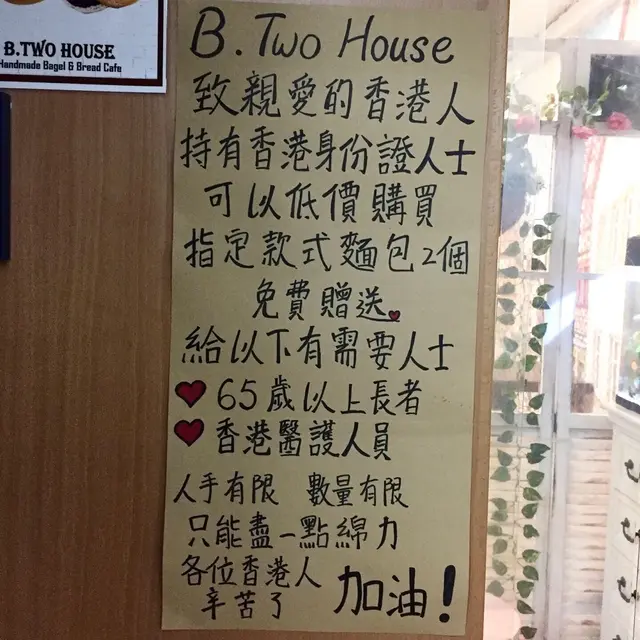 B.TWO HOUSE
Handmade Bagel & Bread Cafe
B. Two House
致親愛的香港人
持有香港身份證人士
可以低價購買
指定款式麵包2個
免費贈送
給以下有需要人士
65歲以上長者
香港醫護人員
人手有限 數量有限
只能盡一點綿力
各位香港人
辛苦了
加油!